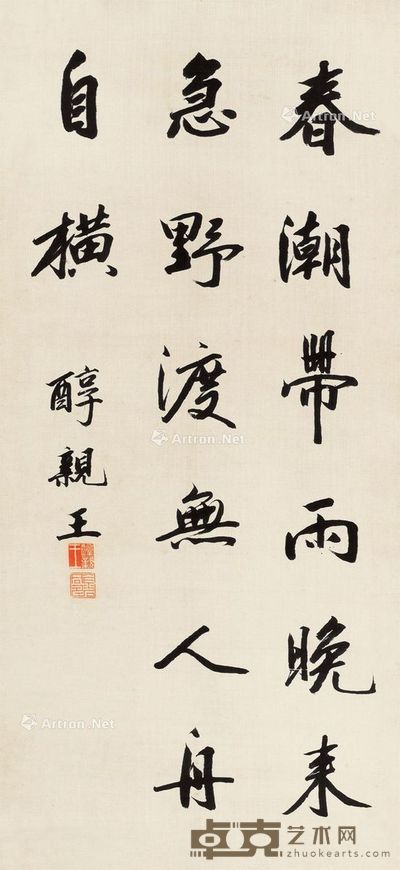 春潮帶雨晚来
急野渡無人舟
自橫
醇親王
Artron.Net
Artron.Net
Artron.Net
Artron.Net
卓克艺术网
zhuokearts.com